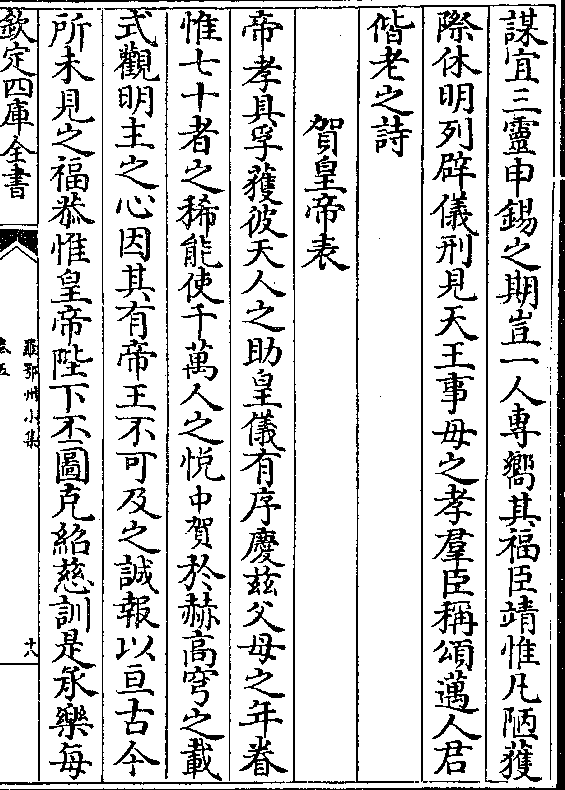 謀宜三靈申錫之期豈一人專嚮其福臣靖惟凡陋獲
際休明列辟儀刑見天王事母之孝羣臣稱頌邁人君
偕老之詩
賀皇帝表
帝孝具孚獲彼天人之助皇儀有序慶兹父母之年眷
惟七十者之稀能使千萬人之悅中賀於赫高穹之載
式觀明主之心因其有帝王不可及之誠報以亘古今
所未見之福恭惟皇帝陛下丕圖克紹慈訓是承樂每
欽定四庫全書
羅鄂州小集
卷五
十八